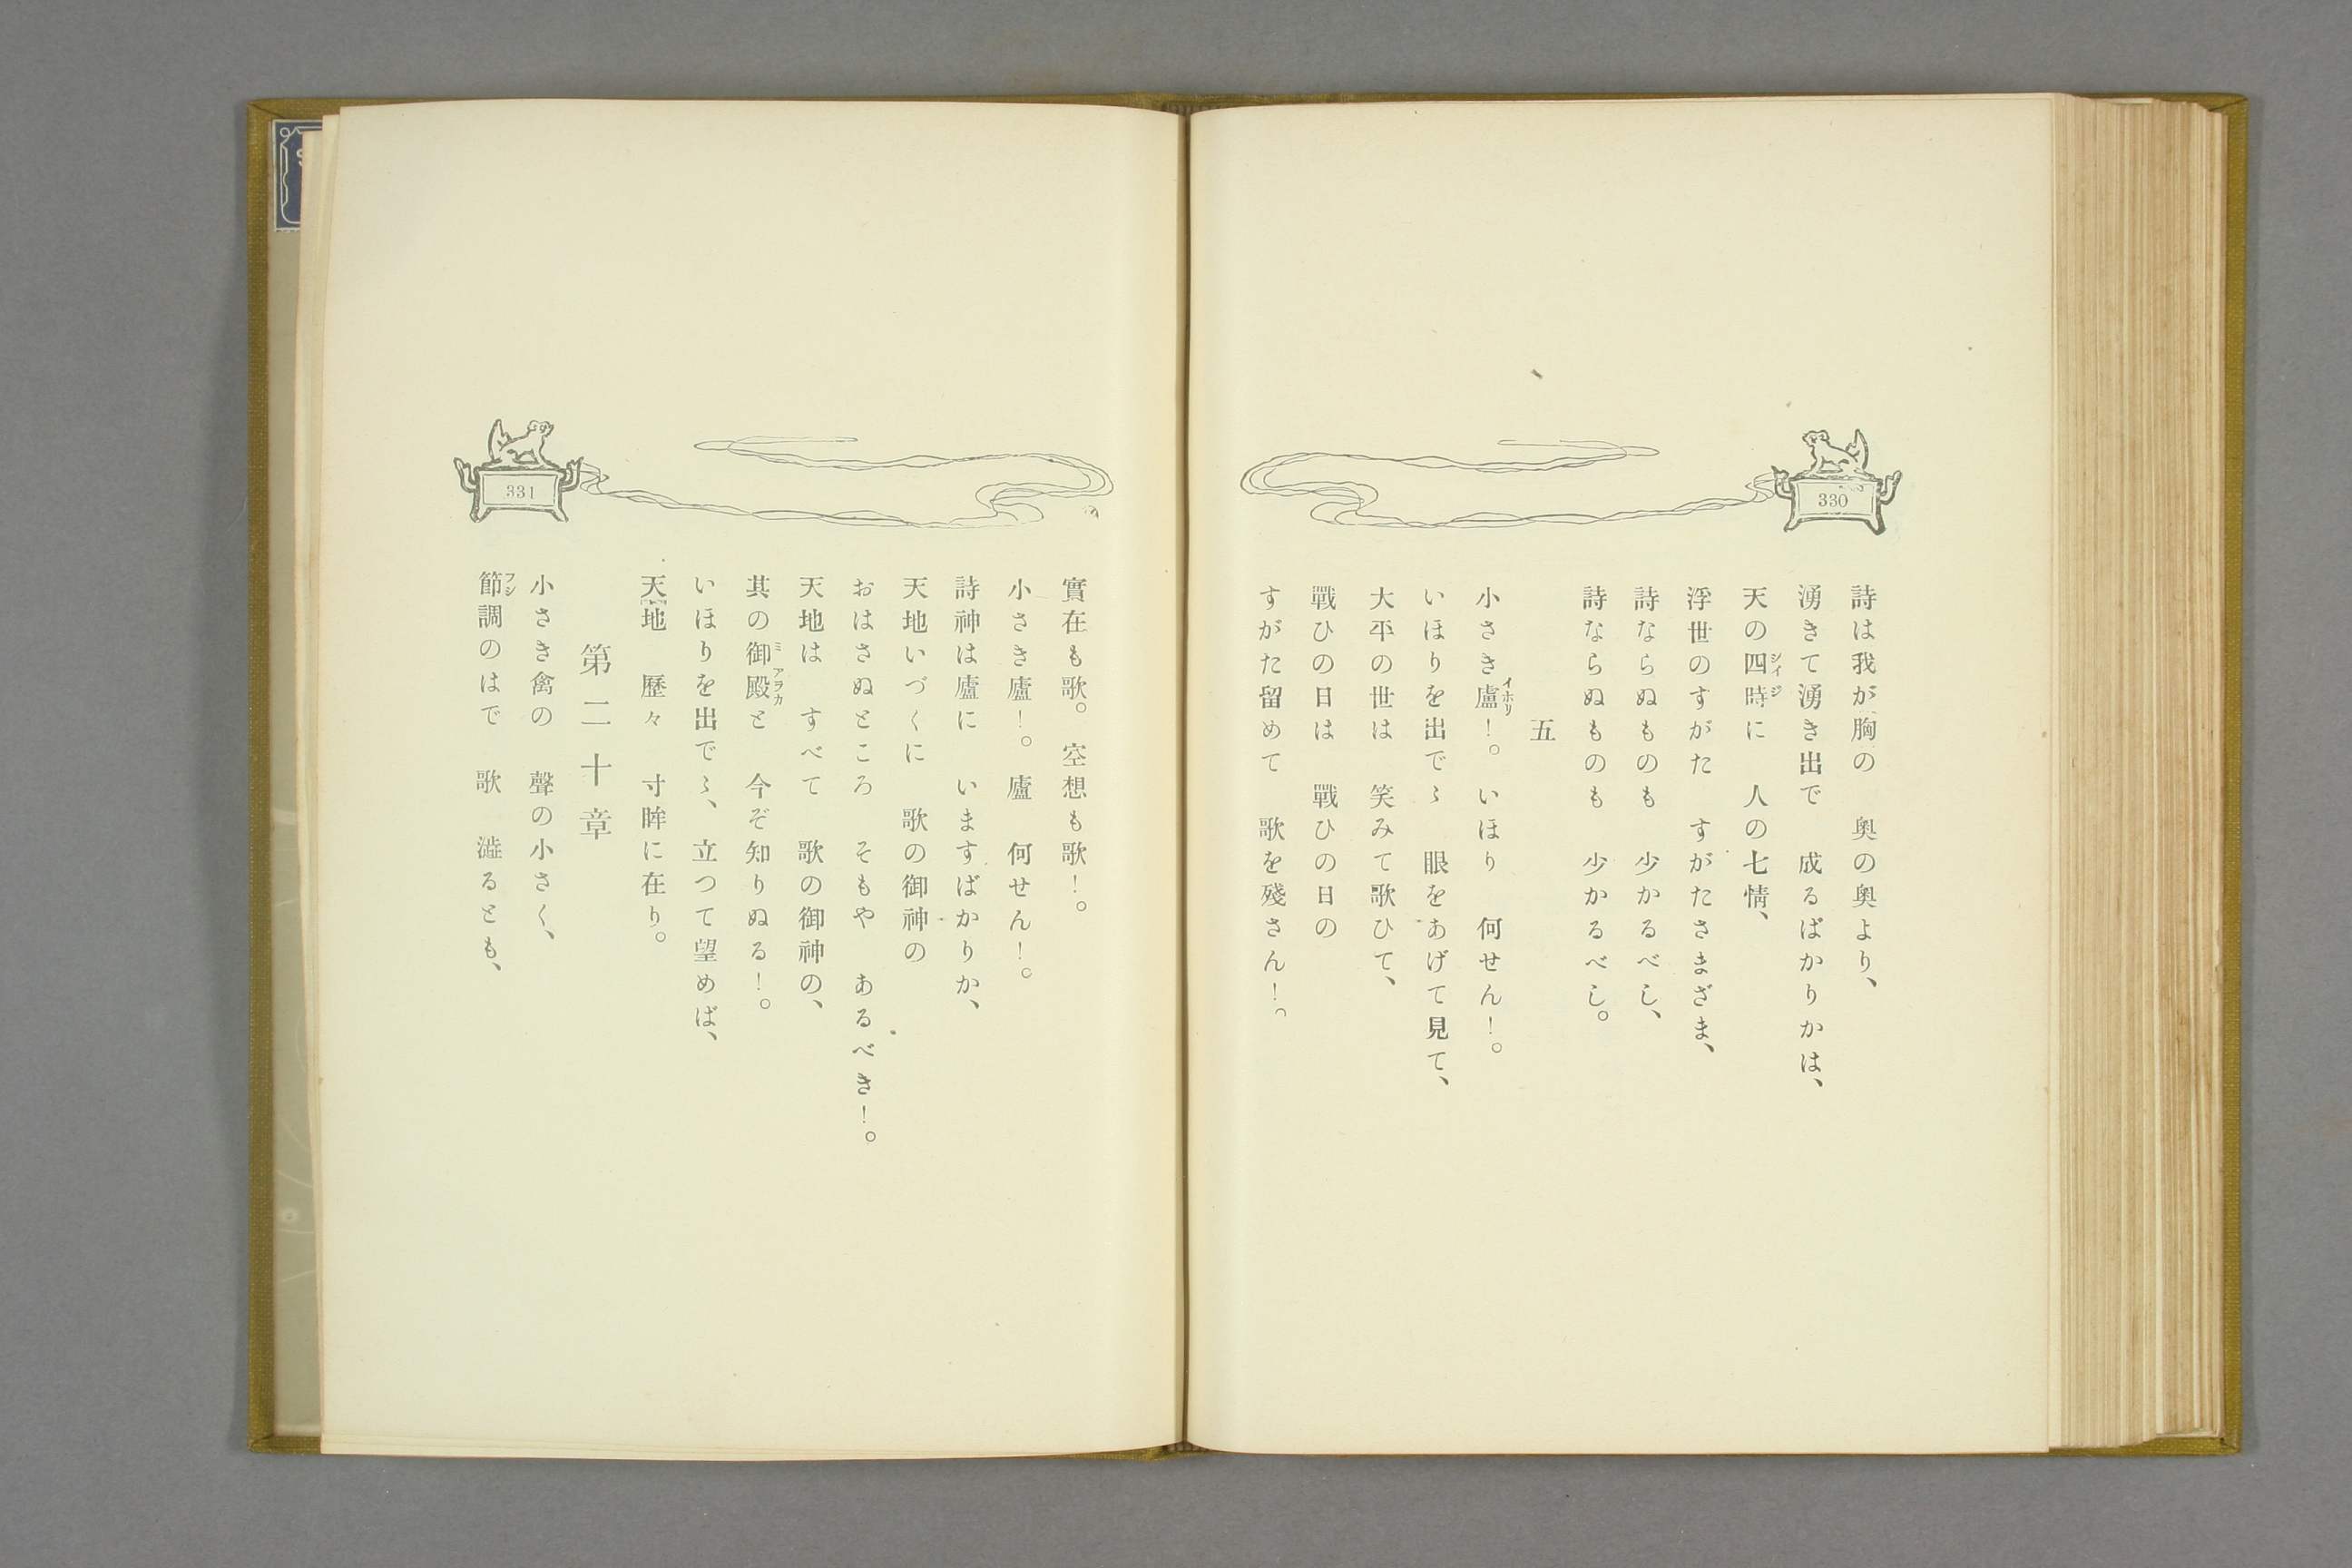 330
詩は我が胸の　奥の奥より、
湧きて湧き出で　成るばかりかは、
天の四時に　人の七情、
シイジ
浮世のすがた　すがたさまざま、
詩ならぬものも　少かるべし、
詩ならぬものも　少かるべし。
五
小さき廬！。いほり　何せん！。
イホリ
いほりを出でゝ　眼をあげて見て、
大平の世は　笑みて歌ひて、
戰ひの日は　戰ひの日の
すがた留めて　歌を殘さん！。
331
實在も歌。空想も歌！。
小さき廬！。廬　何せん！。
詩神は廬に　いますばかりか、
天地いづくに　歌の御神の
おはさぬところ　そもや　あるべき！。
天地は　すべて　歌の御神の、
其の御殿と　今ぞ知りぬる！。
ミアラカ
いほりを出でゝ、立つて望めば、
天地　歷々　寸眸に在り。
第二十章
小さき禽の　聲の小さく、
節調のはで　歌　澁るとも、
フシ